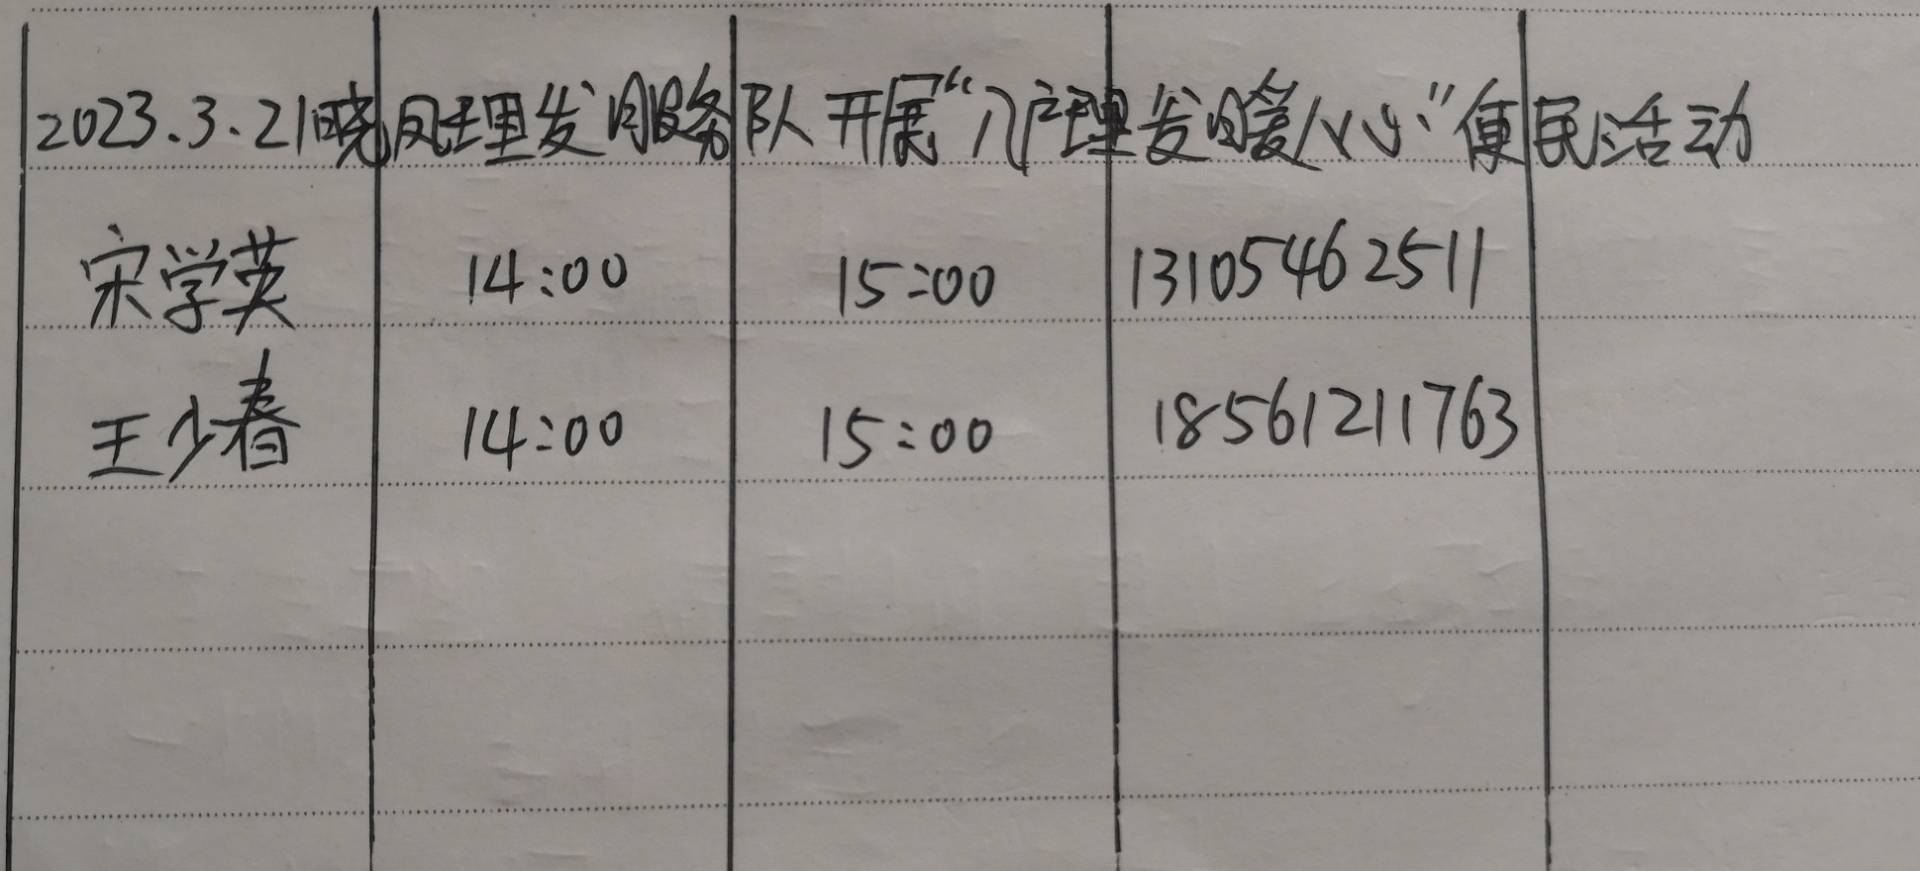 2023.3.21晓风理发服务队开展“入户理发暖人心”便民活动
宋学英 14:00 15:00 13105462511
王少春 14:00 15:00 18561211763